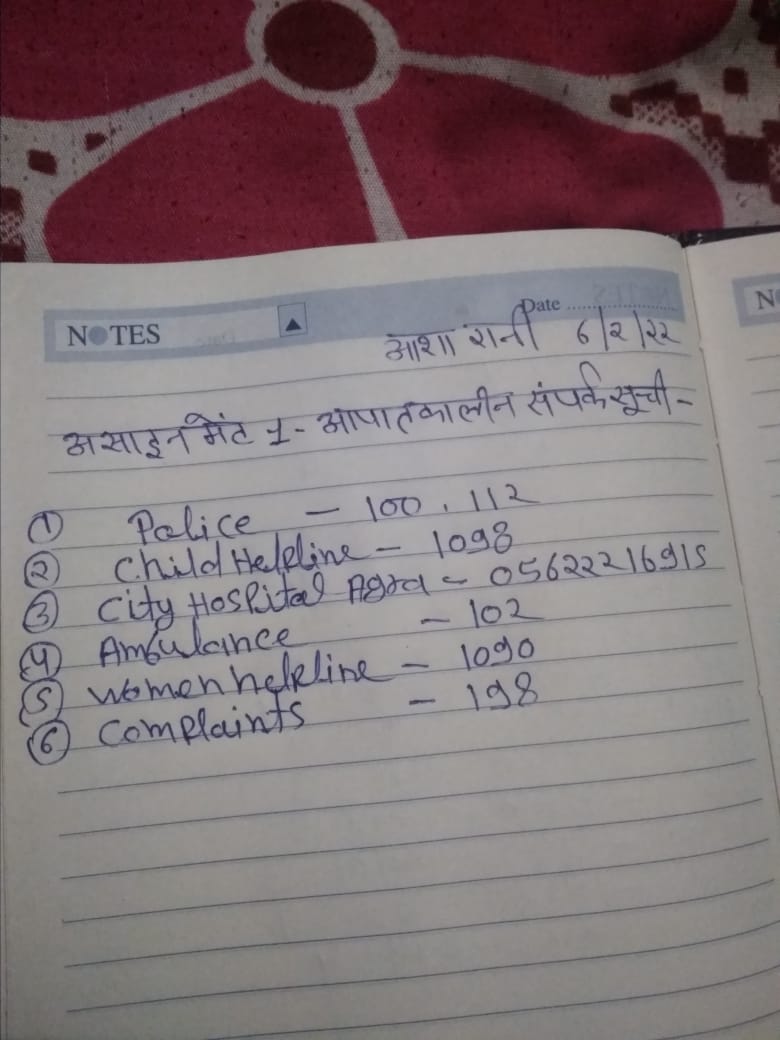 NOTES
Date
आशा रानी 6/2/22
असाइनमेंट 1- आपातकालीन संपर्क सूची-
① Police - 100, 112
② Child Helpline - 1098
③ City Hospital Agra - 05622216915
④ Ambulance - 102
⑤ Women helpline - 1090
⑥ Complaints - 198